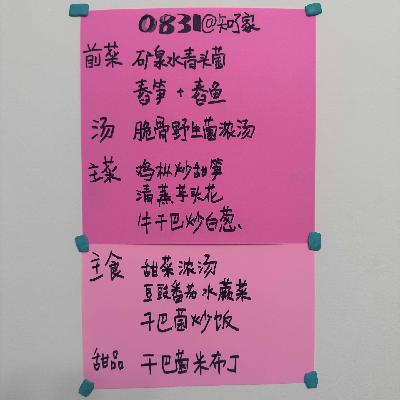 0831@知了家
前菜 矿泉水青头菌
舂笋 + 舂鱼
汤 脆骨野生菌浓汤
主菜 鸡枞炒甜笋
清蒸芋头花
牛干巴炒白葱、
主食 甜菜浓汤
豆豉番茄水蕨菜
干巴菌炒饭
甜品 干巴菌米布丁